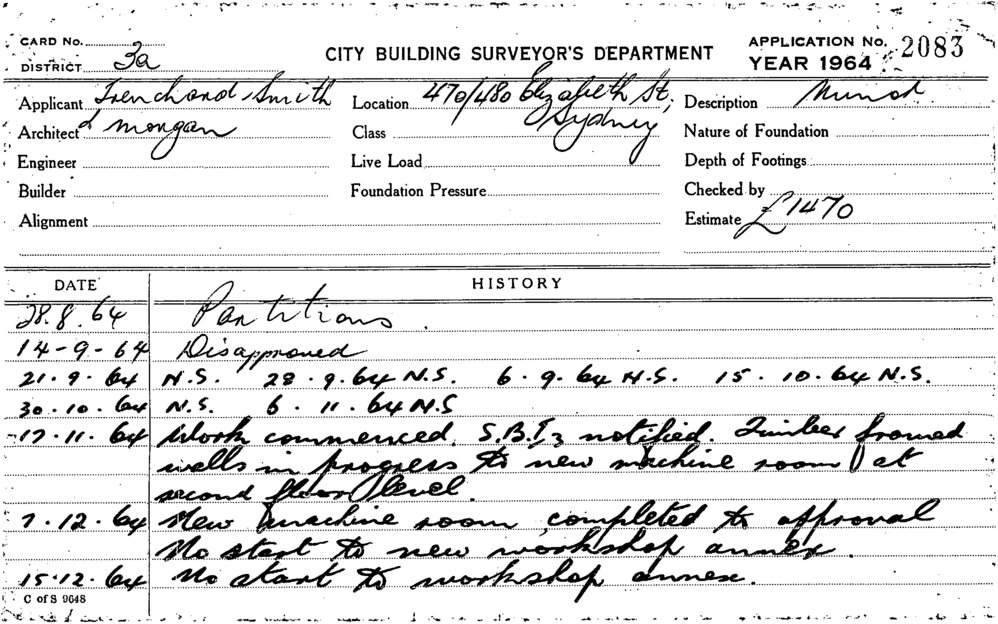 CARD No.
DISTRICT 3a
CITY BUILDING SURVEYOR'S DEPARTMENT
APPLICATION No. 2083
YEAR 1964
Applicant Trenchard Smith
Location 470/480 Elizabeth St, Sydney
Description
Architect & Morgan
Class
Nature of Foundation
Engineer
Live Load
Depth of Footings
Builder
Foundation Pressure
Checked by
Alignment
Estimate £1470
DATE HISTORY
28.8.64 Partitions.
14-9-64 Disapproved
21.9.64 N.S. 28.9.64 N.S. 6.9.64 N.S. 15.10.64 N.S.
30.10.64 N.S. 6.11.64 N.S
17.11.64 Work commenced. S.B.I. 3 notified. Timber framed
walls in progress to new machine room at
second floor level.
7.12.64 New machine room completed to approval
No start to new workshop annex.
15.12.64 No start to workshop annex.
C of S 9648